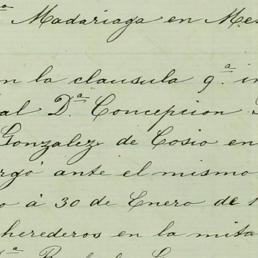 ª Madariaga en Me
n la clausula 9.ª in
al Dª Concepcion
Gonzalez de Cosio en
rgó ante el mismo
o á 30 de Enero de 1
herederos en la mita